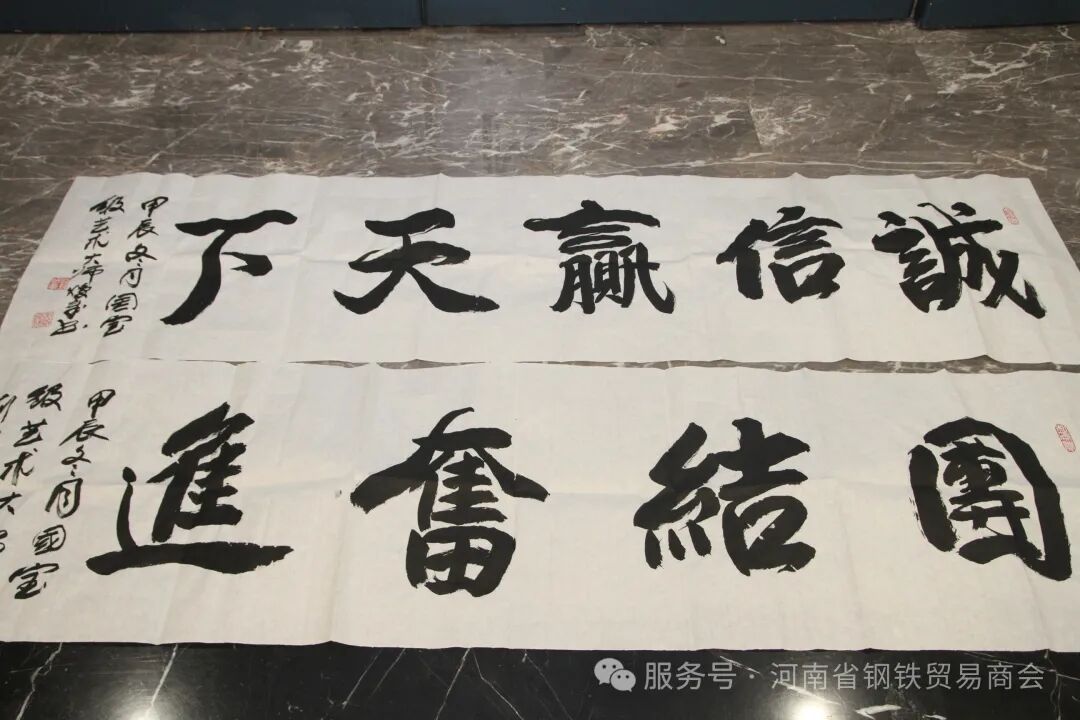 誠信贏天下
甲辰冬月國宝
級艺术大师
團結奮進
甲辰冬月國宝
級艺术大
服务号·河南省钢铁贸易商会